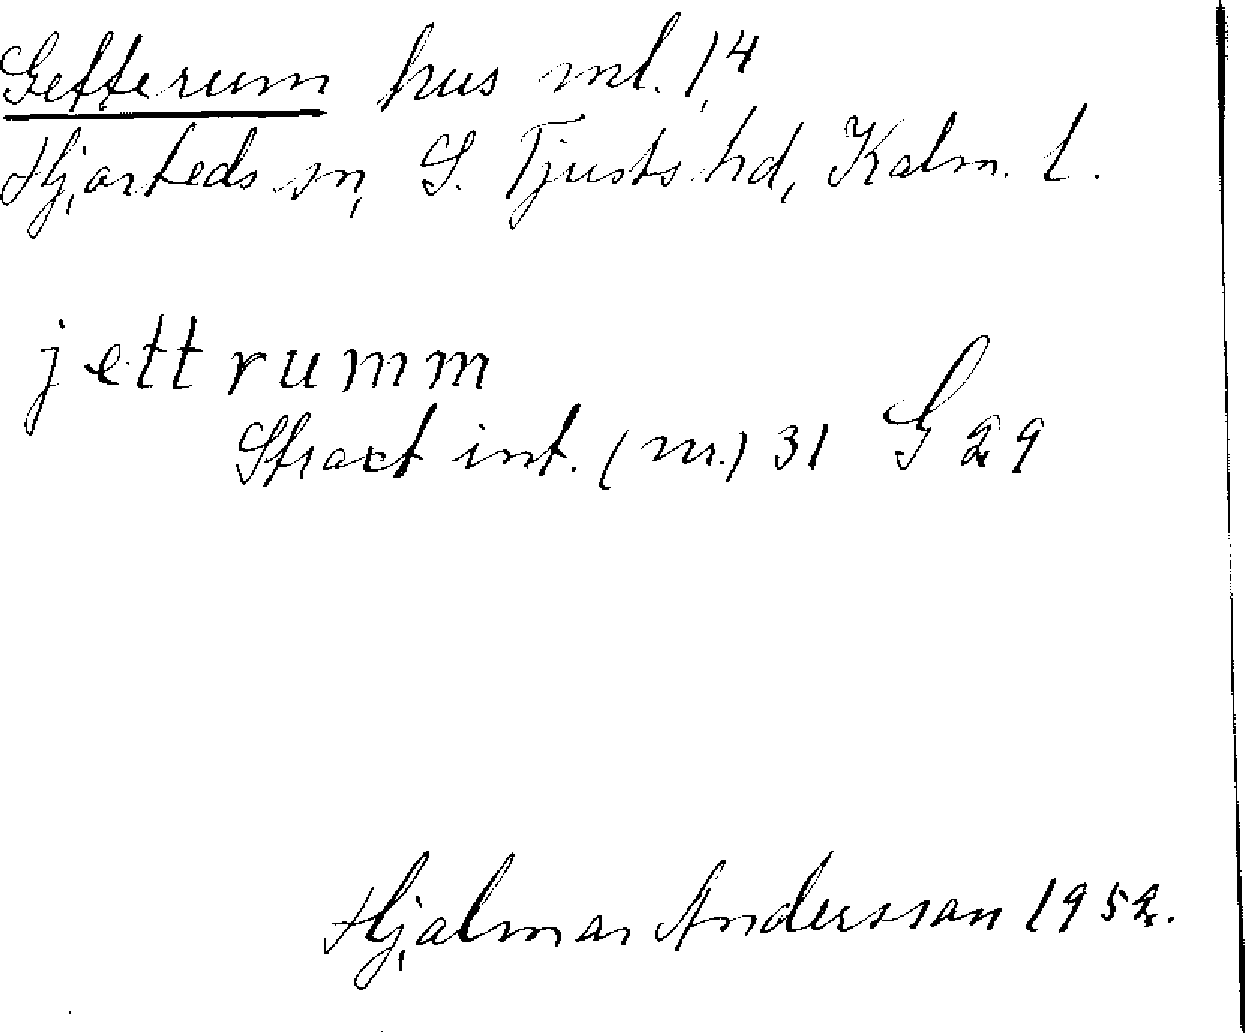 Getterum hus ml. 1,4
Hjorteds sn, S. Tjusts hd, Kalm. l.
jettrumm
Straxt int. (nr.) 31 G 29
Hjalmar Andersson 1952.